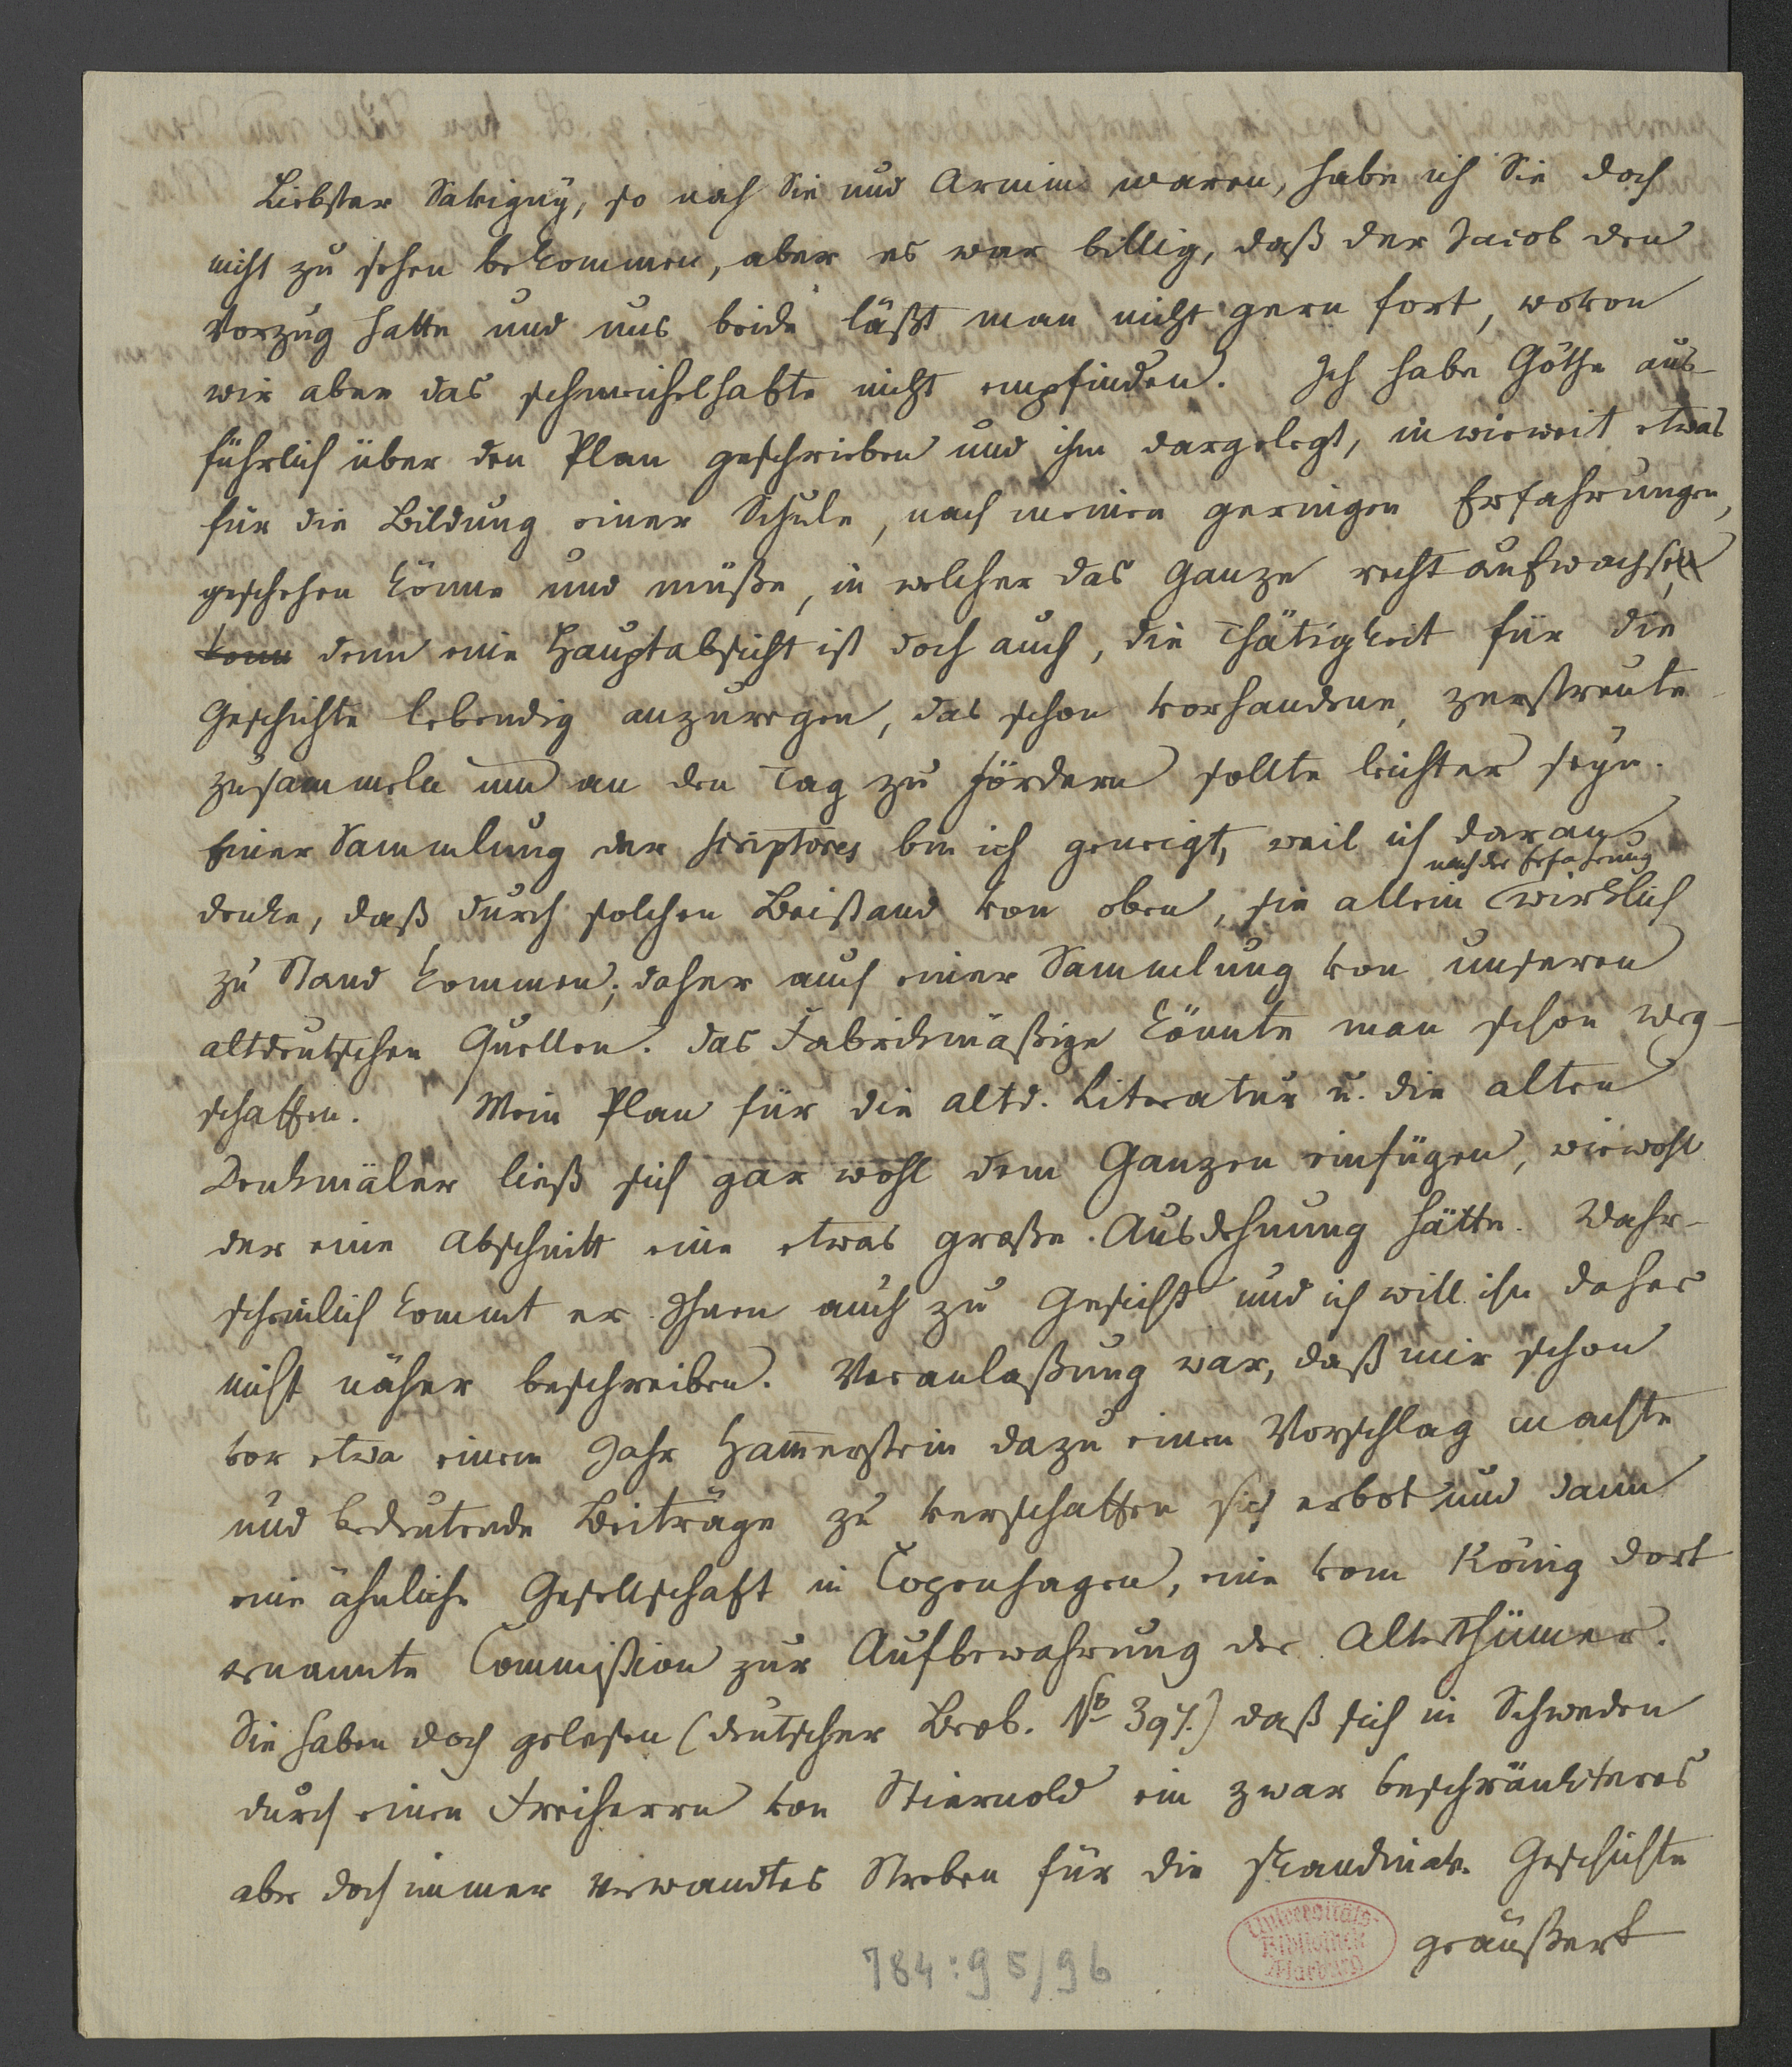 Liebster Savigny, so nah Sie und Arnim waren, habe ich Sie doch
nicht zu sehen bekommen, aber es war billig, daß der Jacob den
Vorzug hatte und uns beide läßt man nicht gern fort, wovon
wir aber das schmeichelhafte nicht empfinden. Ich habe Göthe aus-
führlich über den Plan geschrieben und ihm dargelegt, inwieweit etwas
für die Bildung einer Schule, nach meinen geringen Erfahrungen,
geschehen könne und müße, in welcher das Ganze recht aufwachse,
denn eine Hauptabsicht ist doch auch, die Thätigkeit für die
Geschichte lebendig anzuregen, das schon vorhandene, zerstreute
zusammeln und an den Tag zu fördern sollte leichter seyn.
Einer Sammlung der scriptores bin ich geneigt, weil ich daran
nach der Erfahrung
denke, daß durch solchen Beistand von oben, sie allein wirklich
zu Stand kommen; daher auch einer Sammlung von unseren
altdeutschen Quellen. Das Fabrickmäßige könnte man schon weg-
schaffen. Mein Plan für die altd. Literatur u. die alten
Denkmäler ließ sich gar wohl dem Ganzen einfügen, wiewohl
der eine Abschnitt eine etwas große Ausdehnung hätte. Wahr-
scheinlich kommt er Ihnen auch zu Gesicht und ich will ihn daher
nicht näher beschreiben. Veranlaßung war, daß mir schon
vor etwa einem Jahr Hammerstein dazu einen Vorschlag machte
und bedeutende Beiträge zu verschaffen sich erbot und dann
eine ähnliche Gesellschaft in Copenhagen, eine vom König dort
ernannte Commißion zur Aufbewahrung der Alterthümer.
Sie haben doch gelesen (deutscher Beob. No 397.) daß sich in Schweden
durch einen Freiherrn von Stiernold ein zwar beschränkteres
aber doch immer verwandtes Streben für die skandinav. Geschichte
geäußert
Universitäts-
Bibliothek
Marburg
784:95/96